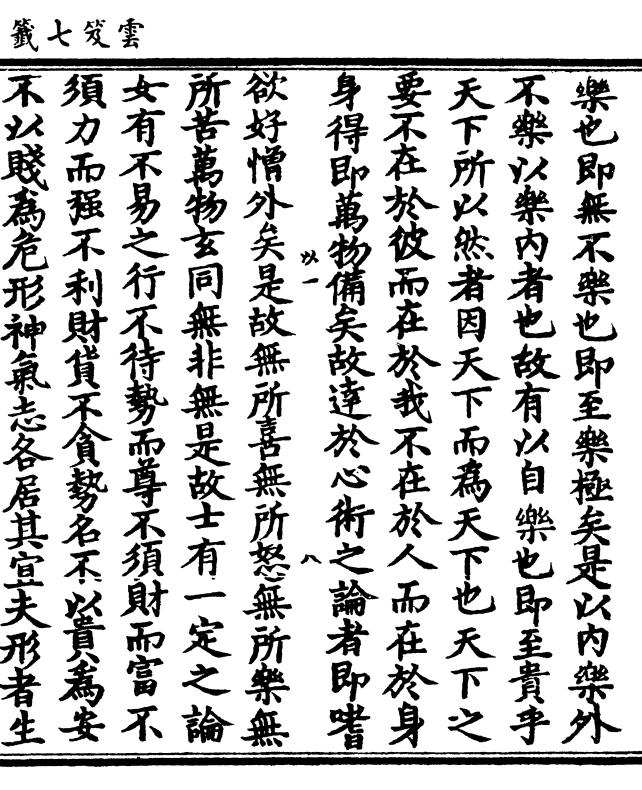 雲笈七籤
樂也即無不樂也即至樂極矣是以内樂外
不樂以樂内者也故有以自樂也即至貴乎
天下所以然者因天下而為天下也天下之
要不在於彼而在於我不在於人而在於身
身得即萬物備矣故達於心術之論者即嗜
以一 八
欲好憎外矣是故無所喜無所怒無所樂無
所苦萬物玄同無非無是故士有一定之論
女有不易之行不待勢而尊不須財而富不
須力而强不利財貨不貪勢名不以貴為安
不以賤為危形神氣志各居其宜夫形者生